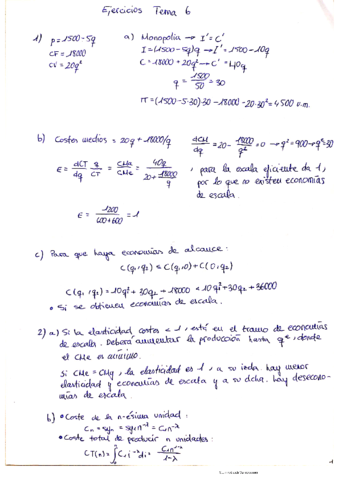 Ejercicios Tema 6
1) p = 1500 - 5q
CF = 18000
CV = 20q²
a) Monopolio → I' = C'
I = (1500 - 5q)q → I' = 1500 - 10q
C = 18000 + 20q² → C' = 40q
q = 1500/50 = 30
π = (1500 - 5·30)·30 - 18000 - 20·30² = 4500 u.m.
b) Costes medios = 20q + 18000/q
dCM/dq = 20 - 18000/q² = 0 → q² = 900 → q = 30
ε = dCT/dq · q/CT = CMa/CMe = 40q/(20 + 18000/q)
, para la escala eficiente da 1,
por lo que no existen economías
de escala.
ε = 1200/(600+600) = 1
c) Para que haya economías de alcance:
C(q₁,q₂) ≤ C(q₁,0) + C(0,q₂)
C(q₁,q₂) = 10q₁² + 30q₂ + 18000 < 10q₁² + 30q₂ + 36000
• Si se obtienen economías de escala.
2) a) Si la elasticidad, costes < 1, está en el tramo de economías
de escala. Deberá aumentar la producción hasta q*, donde
el CMe es mínimo.
Si CMe = CMg, la elasticidad es 1, a su izda. hay menor
elasticidad y economías de escala y a su dcha. hay desecono-
mías de escala.
b) • Coste de la n-ésima unidad:
• Coste total de producir n unidades: